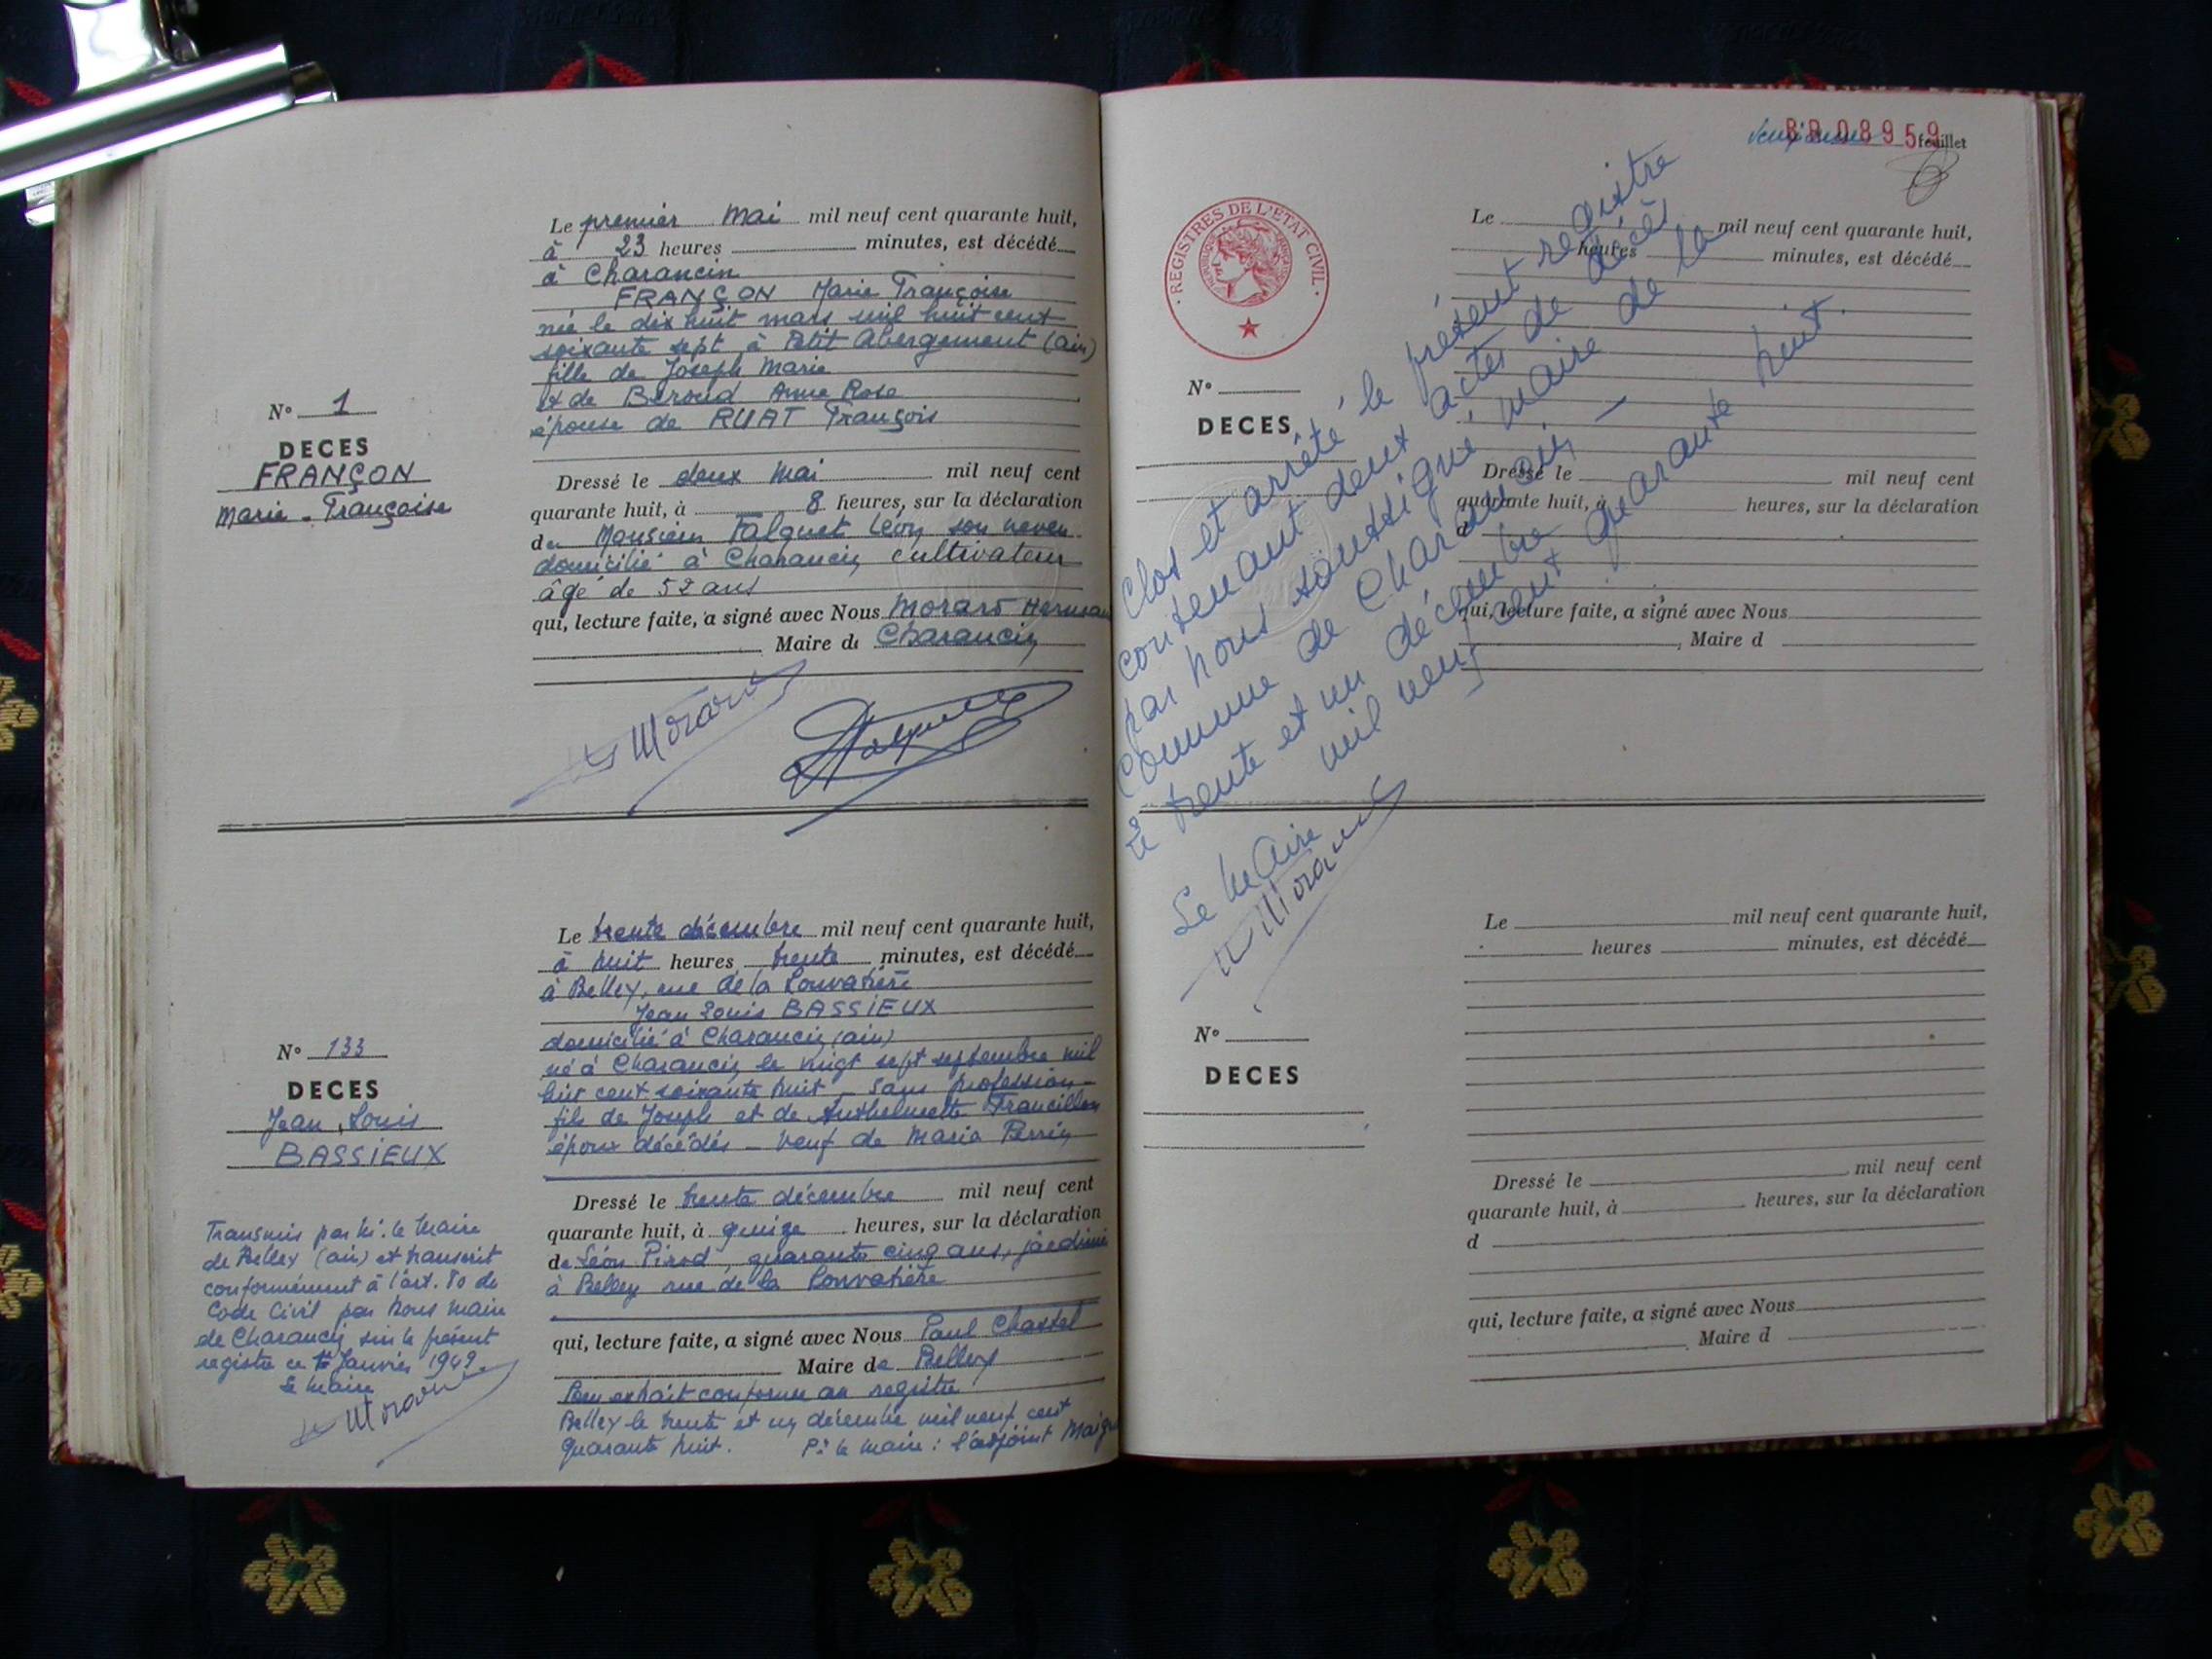 Le premier mai mil neuf cent quarante huit,
à 23 heures minutes, est décédé
à Charancin
FRANÇON Marie Françoise
née le dix huit mars mil huit cent
soixante sept à Petit Abergement (ain)
fille de Joseph Marie
et de Beroud Anne Rose
épouse de RUAT François
N° 1
DECES
FRANÇON
Marie-Françoise
Dressé le deux mai mil neuf cent
quarante huit, à 8 heures, sur la déclaration
de Monsieur Falquet Léon son neveu
domicilié à Charancin cultivateur
âgé de 52 ans
qui, lecture faite, a signé avec Nous Morard Herman
Maire de Charancin
Morard
Falquet
Le trente décembre mil neuf cent quarante huit,
à huit heures trente minutes, est décédé
à Belley, rue de la Louvatière
Jean Louis BASSIEUX
domicilié à Charancin (ain)
né à Charancin le vingt sept septembre mil
huit cent soixante huit - sans profession -
fils de Joseph et de Anthelmette Francillon
époux décédés - veuf de Maria Perrin
N° 133
DECES
Jean Louis
BASSIEUX
Dressé le trente décembre mil neuf cent
quarante huit, à quinze heures, sur la déclaration
de Léon Pirod, quarante cinq ans, jardinier
à Belley rue de la Louvatière
qui, lecture faite, a signé avec Nous Paul Chastel
Maire de Belley
Pour extrait conforme au registre
Belley le trente et un décembre mil neuf cent
quarante huit. Pr le maire : l'adjoint
Transmis par M. le Maire
de Belley (ain) et transcrit
conformément à l'art. 80 du
Code Civil par nous maire
de Charancin sur le présent
registre ce Janvier 1949.
Le Maire
Morard
BB08959 feuillet
REGISTRES DE L'ETAT CIVIL
Le mil neuf cent quarante huit,
heures minutes, est décédé
N°
DECES
Dressé le mil neuf cent
quarante huit, à heures, sur la déclaration
d
qui, lecture faite, a signé avec Nous
, Maire d
Clos et arrêté le présent registre
contenant deux actes de décès
par nous soussigné, maire de la
Commune de Charancin, -
le trente et un décembre
mil neuf cent quarante huit.
Le Maire
Morard
Le mil neuf cent quarante huit,
heures minutes, est décédé
N°
DECES
Dressé le mil neuf cent
quarante huit, à heures, sur la déclaration
d
qui, lecture faite, a signé avec Nous
, Maire d